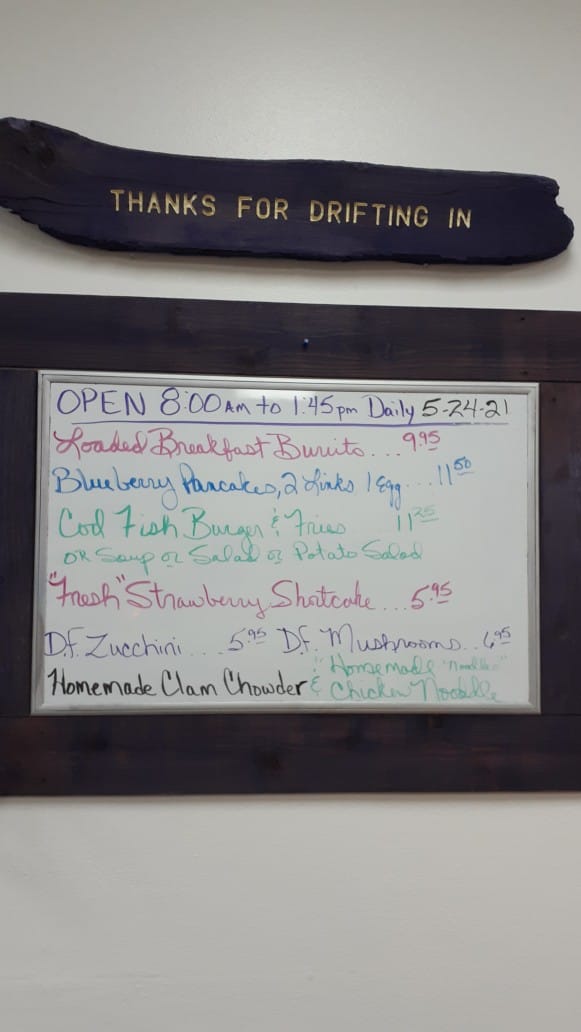 THANKS FOR DRIFTING IN
OPEN 8:00 AM to 1:45 pm Daily 5-24-21
Loaded Breakfast Burrito... 9.95
Blueberry Pancakes, 2 Links 1 Egg... 11.50
Cod Fish Burger & Fries 11.25
OR Soup or Salad or Potato Salad
"Fresh" Strawberry Shortcake... 5.95
D.f. Zucchini... 5.95 D.f. Mushrooms.. 6.95
Homemade Clam Chowder & "Homemade "noodles"
Chicken Noodle